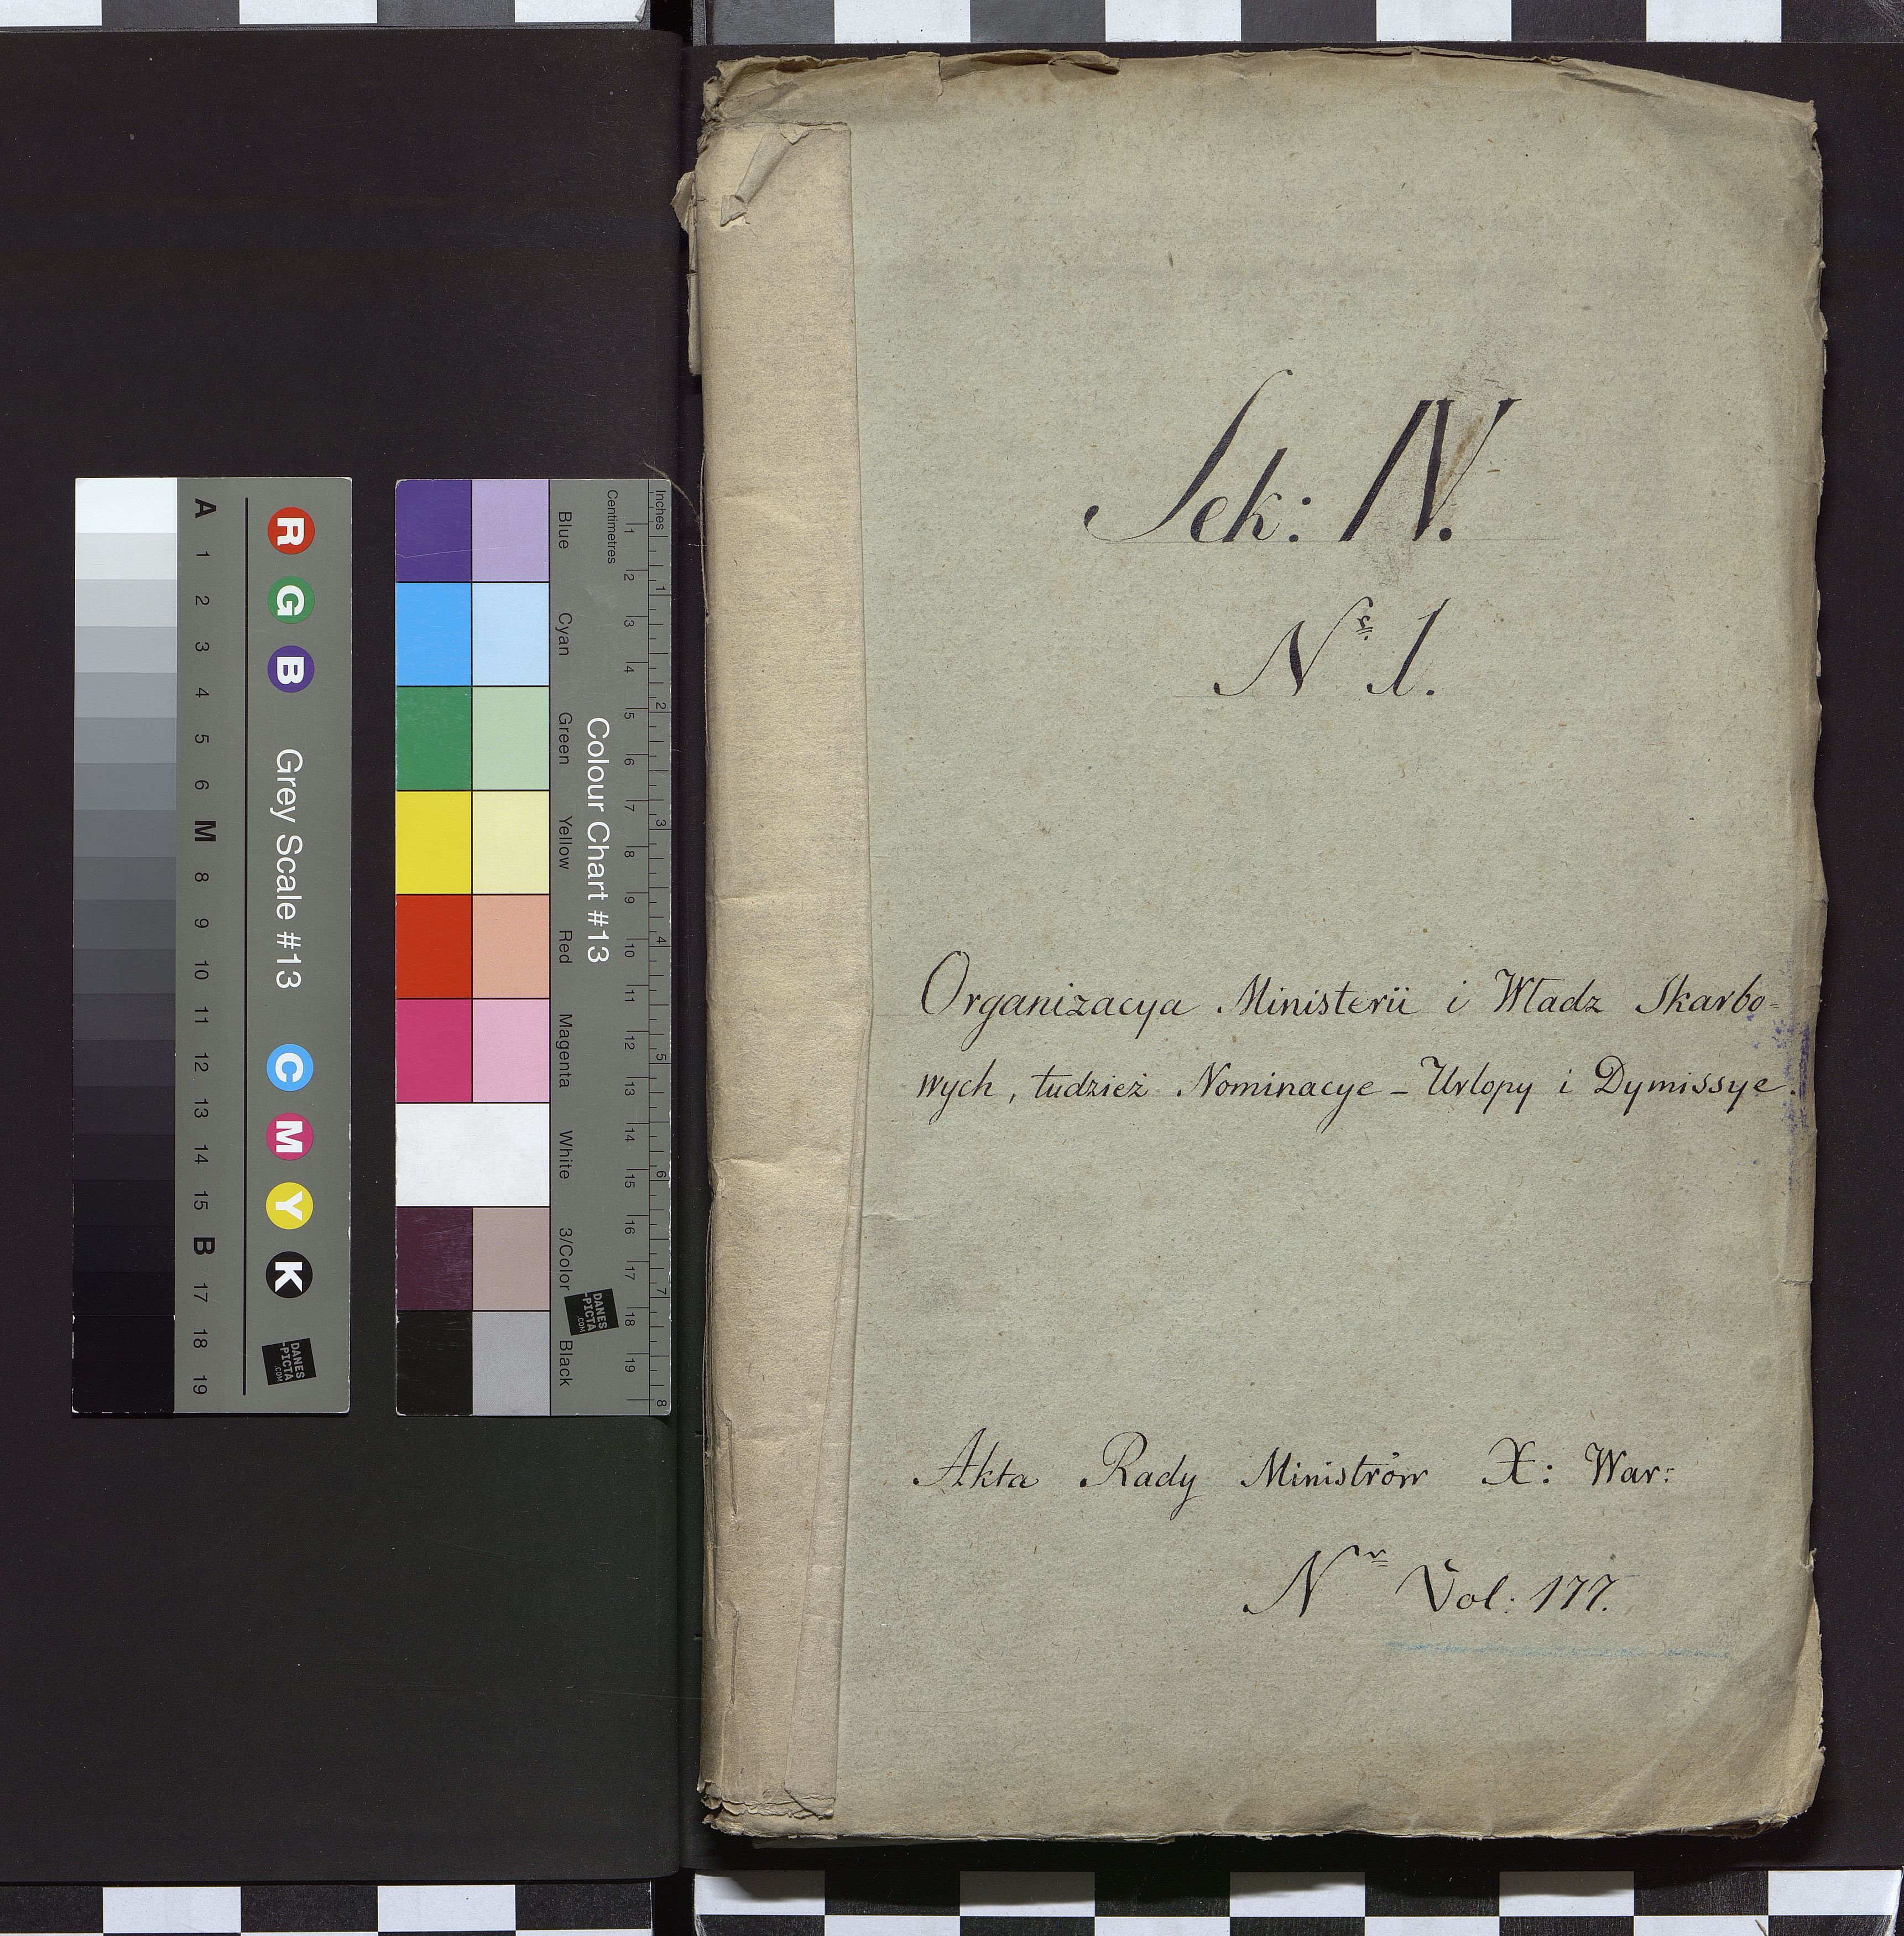 A 1 2 3 4 5 6 M 8 9 10 11 12 13 14 15 B 17 18 19
R G B Grey Scale #13 C M Y K
DANES
-PICTA
.COM
Blue Cyan Green Yellow Red Magenta White 3/Color Black
Colour Chart #13
DANES
-PICTA
.COM
Centimetres 1 2 3 4 5 6 7 8 9 10 11 12 13 14 15 16 17 18 19
Inches 1 2 3 4 5 6 7 8
Sek: IV.
Nr 1.
Organizacya Ministerii i Władz Skarbo-
wych, tudzież Nominacye - Urlopy i Dymissye.
Akta Rady Ministrów X: War:
Nr Vol: 177.